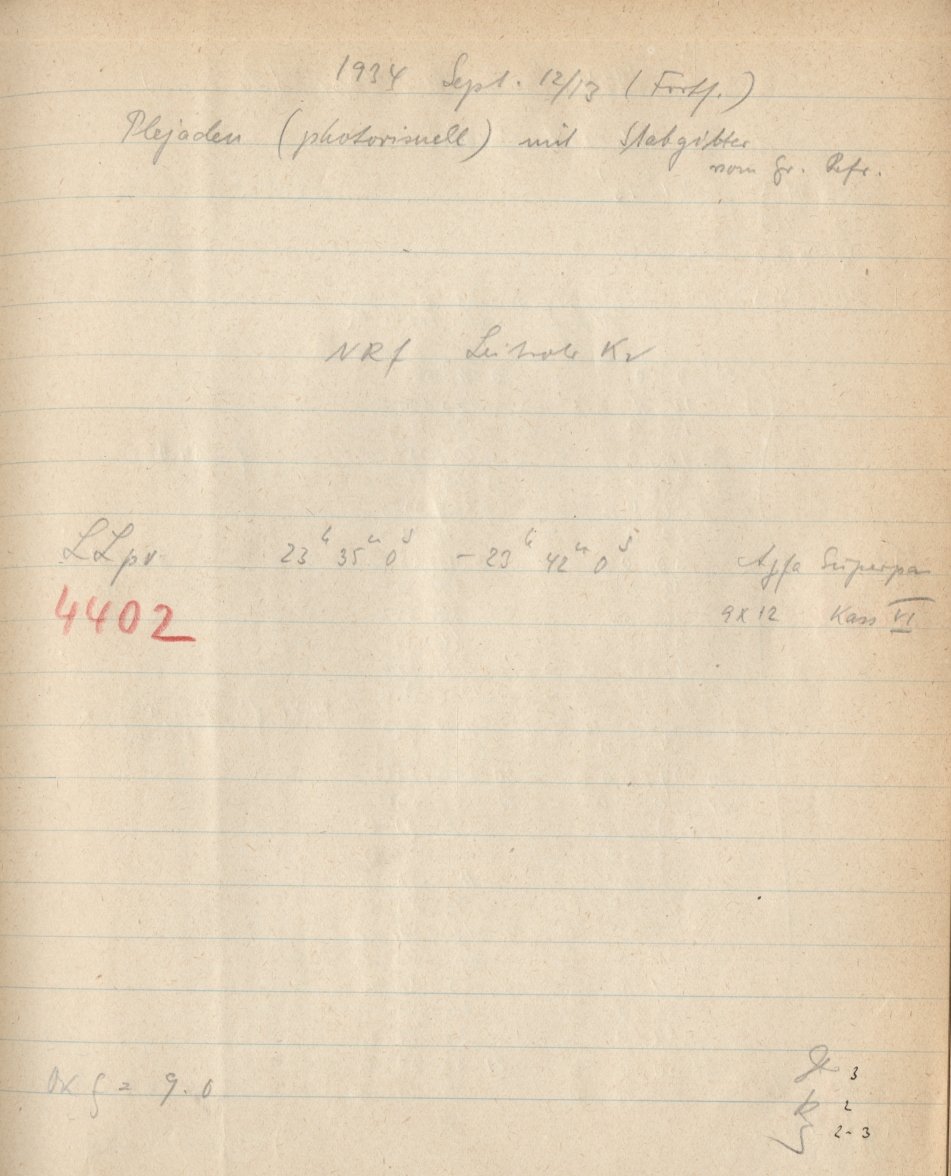 1934 Sept. 12/13 (Forts.)
Plejaden (photovisuell) mit Stabgitter
vom Gr. Refr.
NRf
LLpv 23h 35m 0s – 23h 42m 0s Agfa Superpan
4402 9x12 Kass VI
= 9.0
3
2
2-3